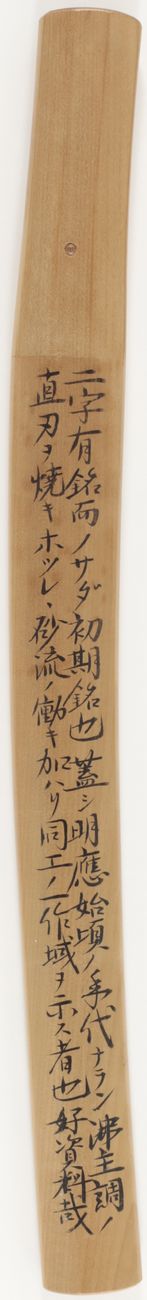 二字有銘而ノサダ初期銘也蓋シ明應始頃ノ年代ナラン沸主調ノ
直刃ヲ焼キホツレ、砂流ノ働キ加ハリ同工ノ一作域ヲ示ス者也好資料哉